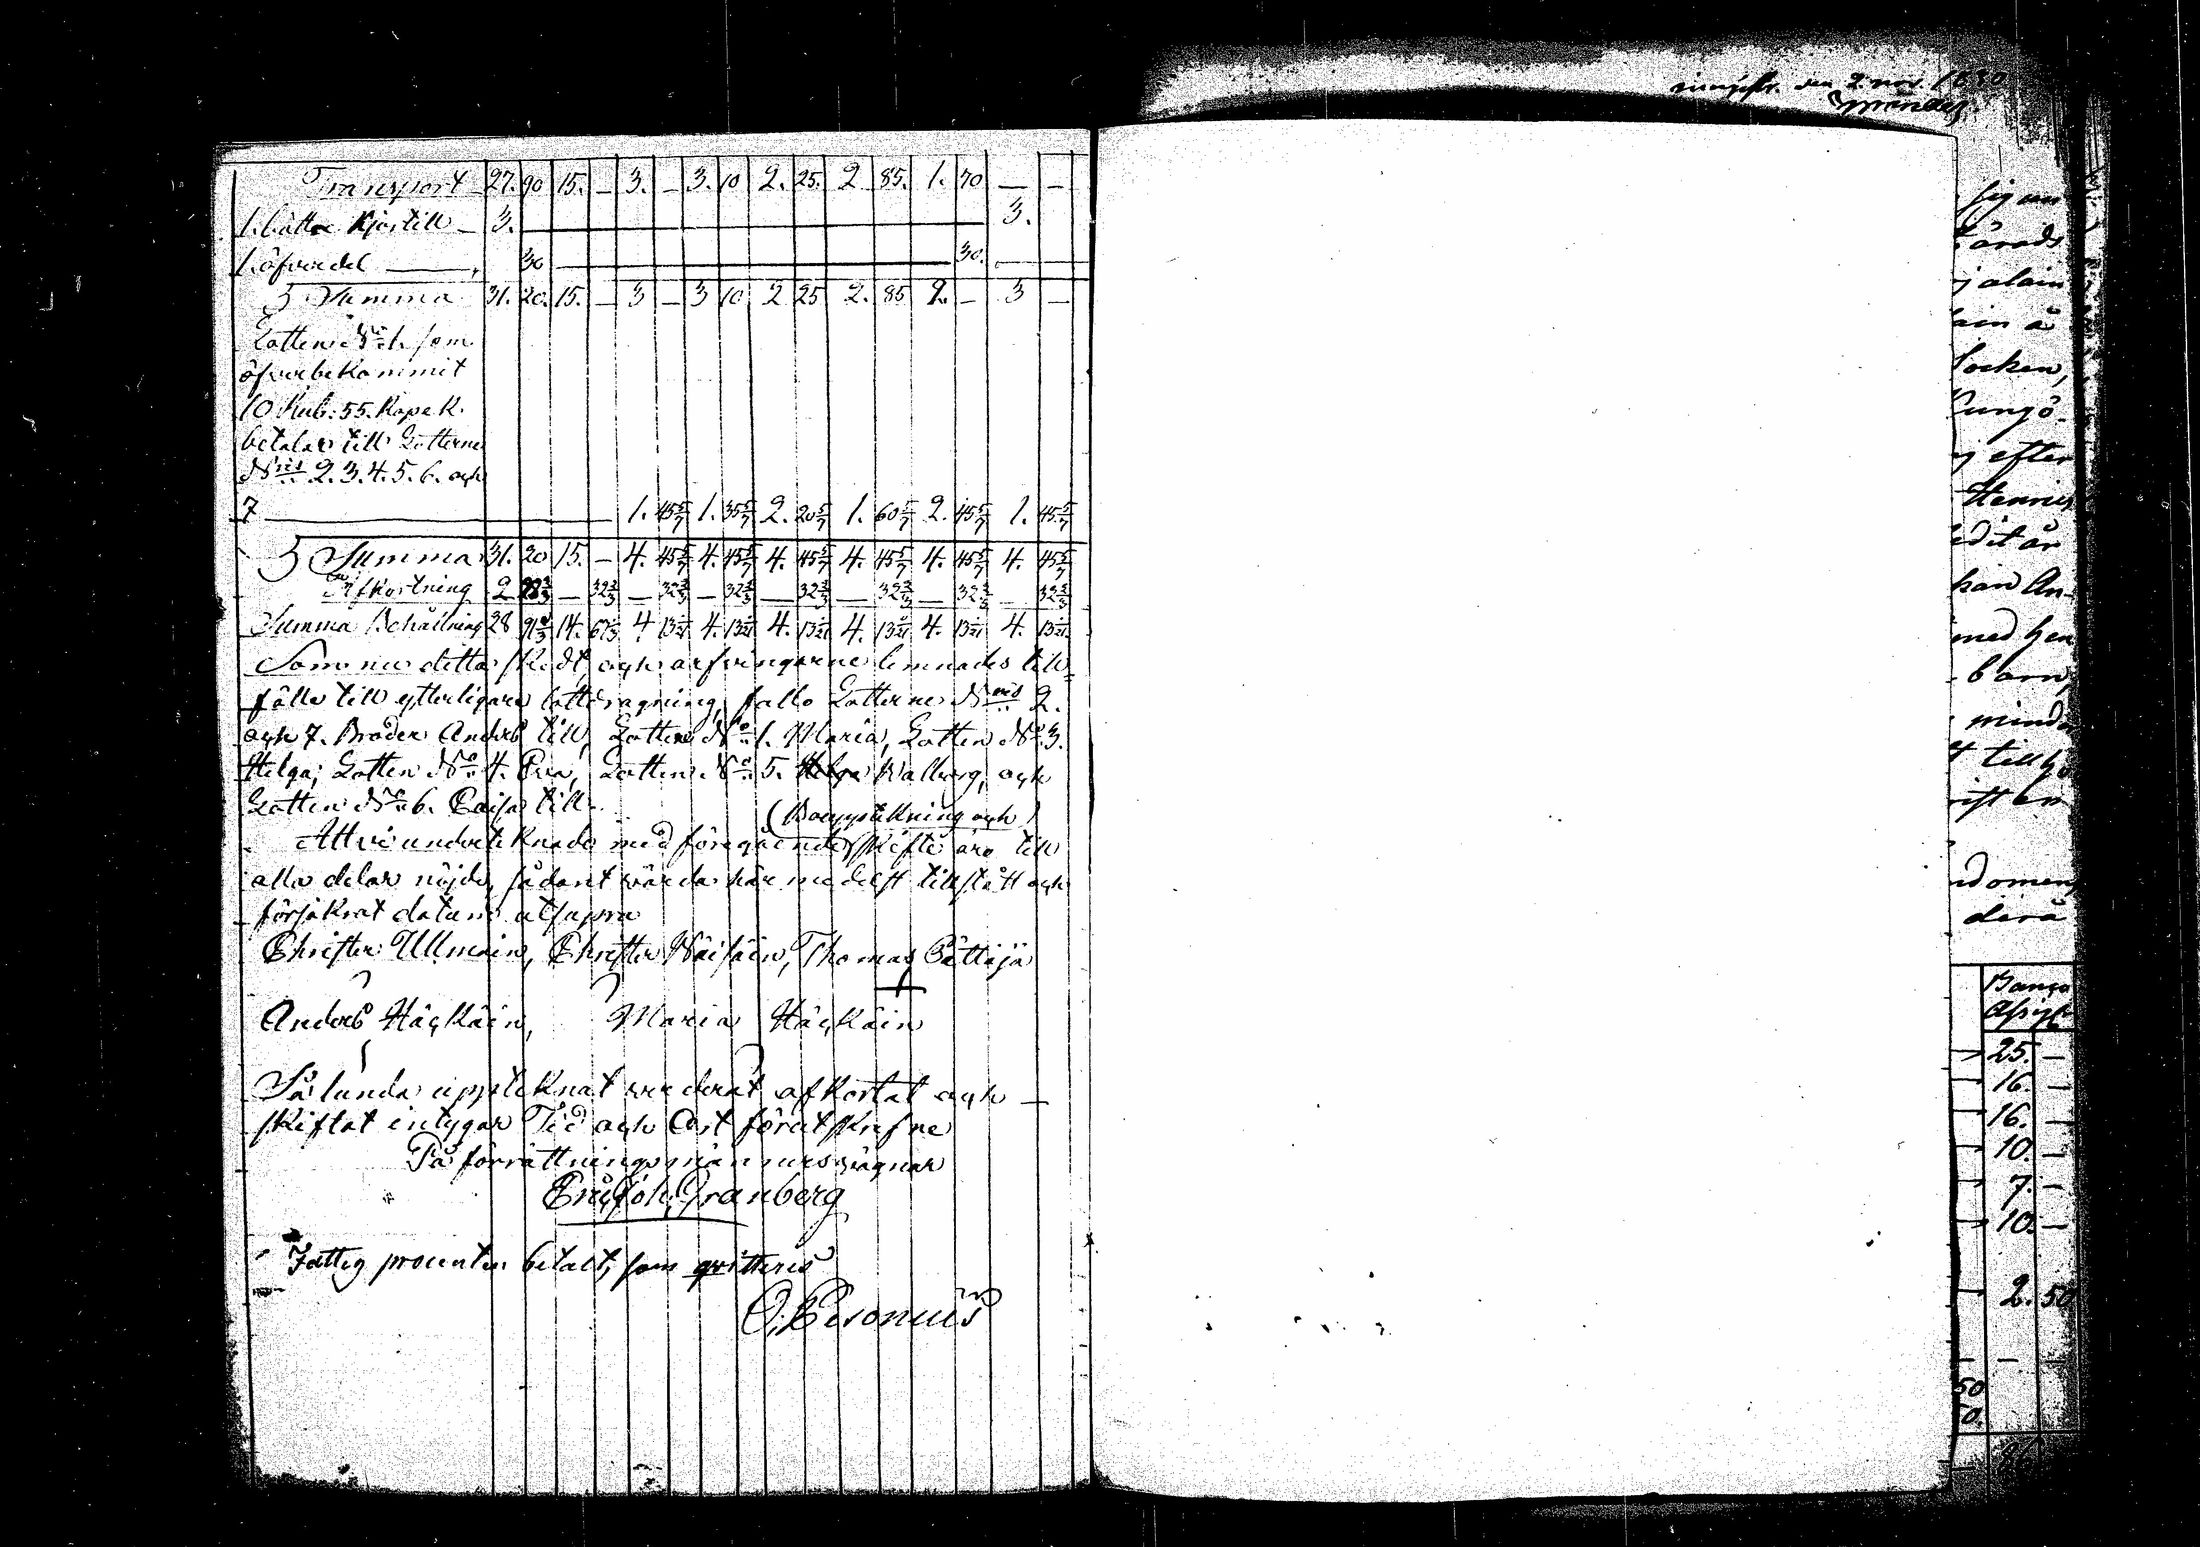 ingifv. den 2 nov. 1830
Transport 27. 90 15. — 3. — 3. 10 2. 25. 2. 85. 1. 70 — —
1. bättre Kjortill — 3. 3.
1. öfverdel — 30 30.
Summa 31. 20. 15. — 3 — 3 10 2 25 2. 85 2. — 3 —
Lotten N:o 1. som
öfverbekommit
10 Rub: 55. Kopek.
betalar till Lotterne
N:ris 2. 3. 4. 5. 6. och
7 1. 45 5/7 1. 35 5/7 2. 20 5/7 1. 60 5/7 2. 45 5/7 1. 45 5/7
Summa 31. 20 15. — 4. 45 5/7 4. 45 5/7 4. 45 5/7 4. 45 5/7 4. 45 5/7 4. 45 5/7
Afkortning 2 28 2/3 — 32 2/3 — 32 2/3 — 32 2/3 — 32 2/3 — 32 2/3 — 32 2/3 — 32 2/3
Summa Behållning 28 91 1/3 14. 67 1/3 4 13 1/21 4. 13 1/21 4. 13 1/21 4. 13 1/21 4. 13 1/21 4. 13 1/21
Som nu detta skedt, och arfvingarne lemnades till
fälle till ytterligare lottdragning, fallo Lotterne N:ris 2.
och 7. Brodern Anders till, Lotten N:o 1. Maria, Lotten N:o 3.
Helga; Lotten N:o 4. Eva, Lotten N:o 5. Walborg, och
Lotten N:o 6. Caisa till.
(Bouppteckning och)
Att vi undertecknade med föregående skifte äro till
alla delar nöjde, sådant varder här medelst tillstått och
försäkrat datum utsupra
Christer Ullmain, Christer Wäisäin, Thomas Pättäjä
Anders Häckäin, Maria Häckäin
Sålunda upptecknat värderat afkortat och
skiftat intygar Tid och Ort förutskrefne
På förrättningsmännernes vägnar
Eric Joh: Granberg
Fattig procenten betalt, som qvitteras
O. Pesonius
sig un
härads
j alain
ain å
Socken,
Kungö-
j efter
Henric
edit är
han An-
med hen
barn,
mind
tillhö
rift en
domen,
derå
Banco
Assign
25. —
16. —
16. —
10. —
7. —
10. —
2. 50
50
0.